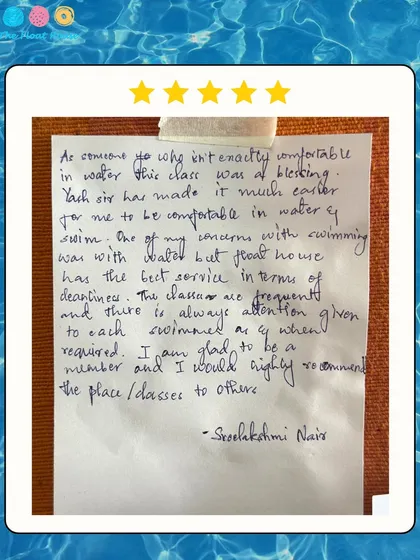 The Float House
As someone who isn't exactly comfortable
in water this class was a blessing.
Yash sir has made it much easier
for me to be comfortable in water &
swim. One of my concerns with swimming
was with water but float house
has the best service in terms of
cleanliness. The classes are frequent
and there is always attention given
to each swimmer as & when
required. I am glad to be a
member and I would highly recommend
the place/classes to others
- Sreelakshmi Nair